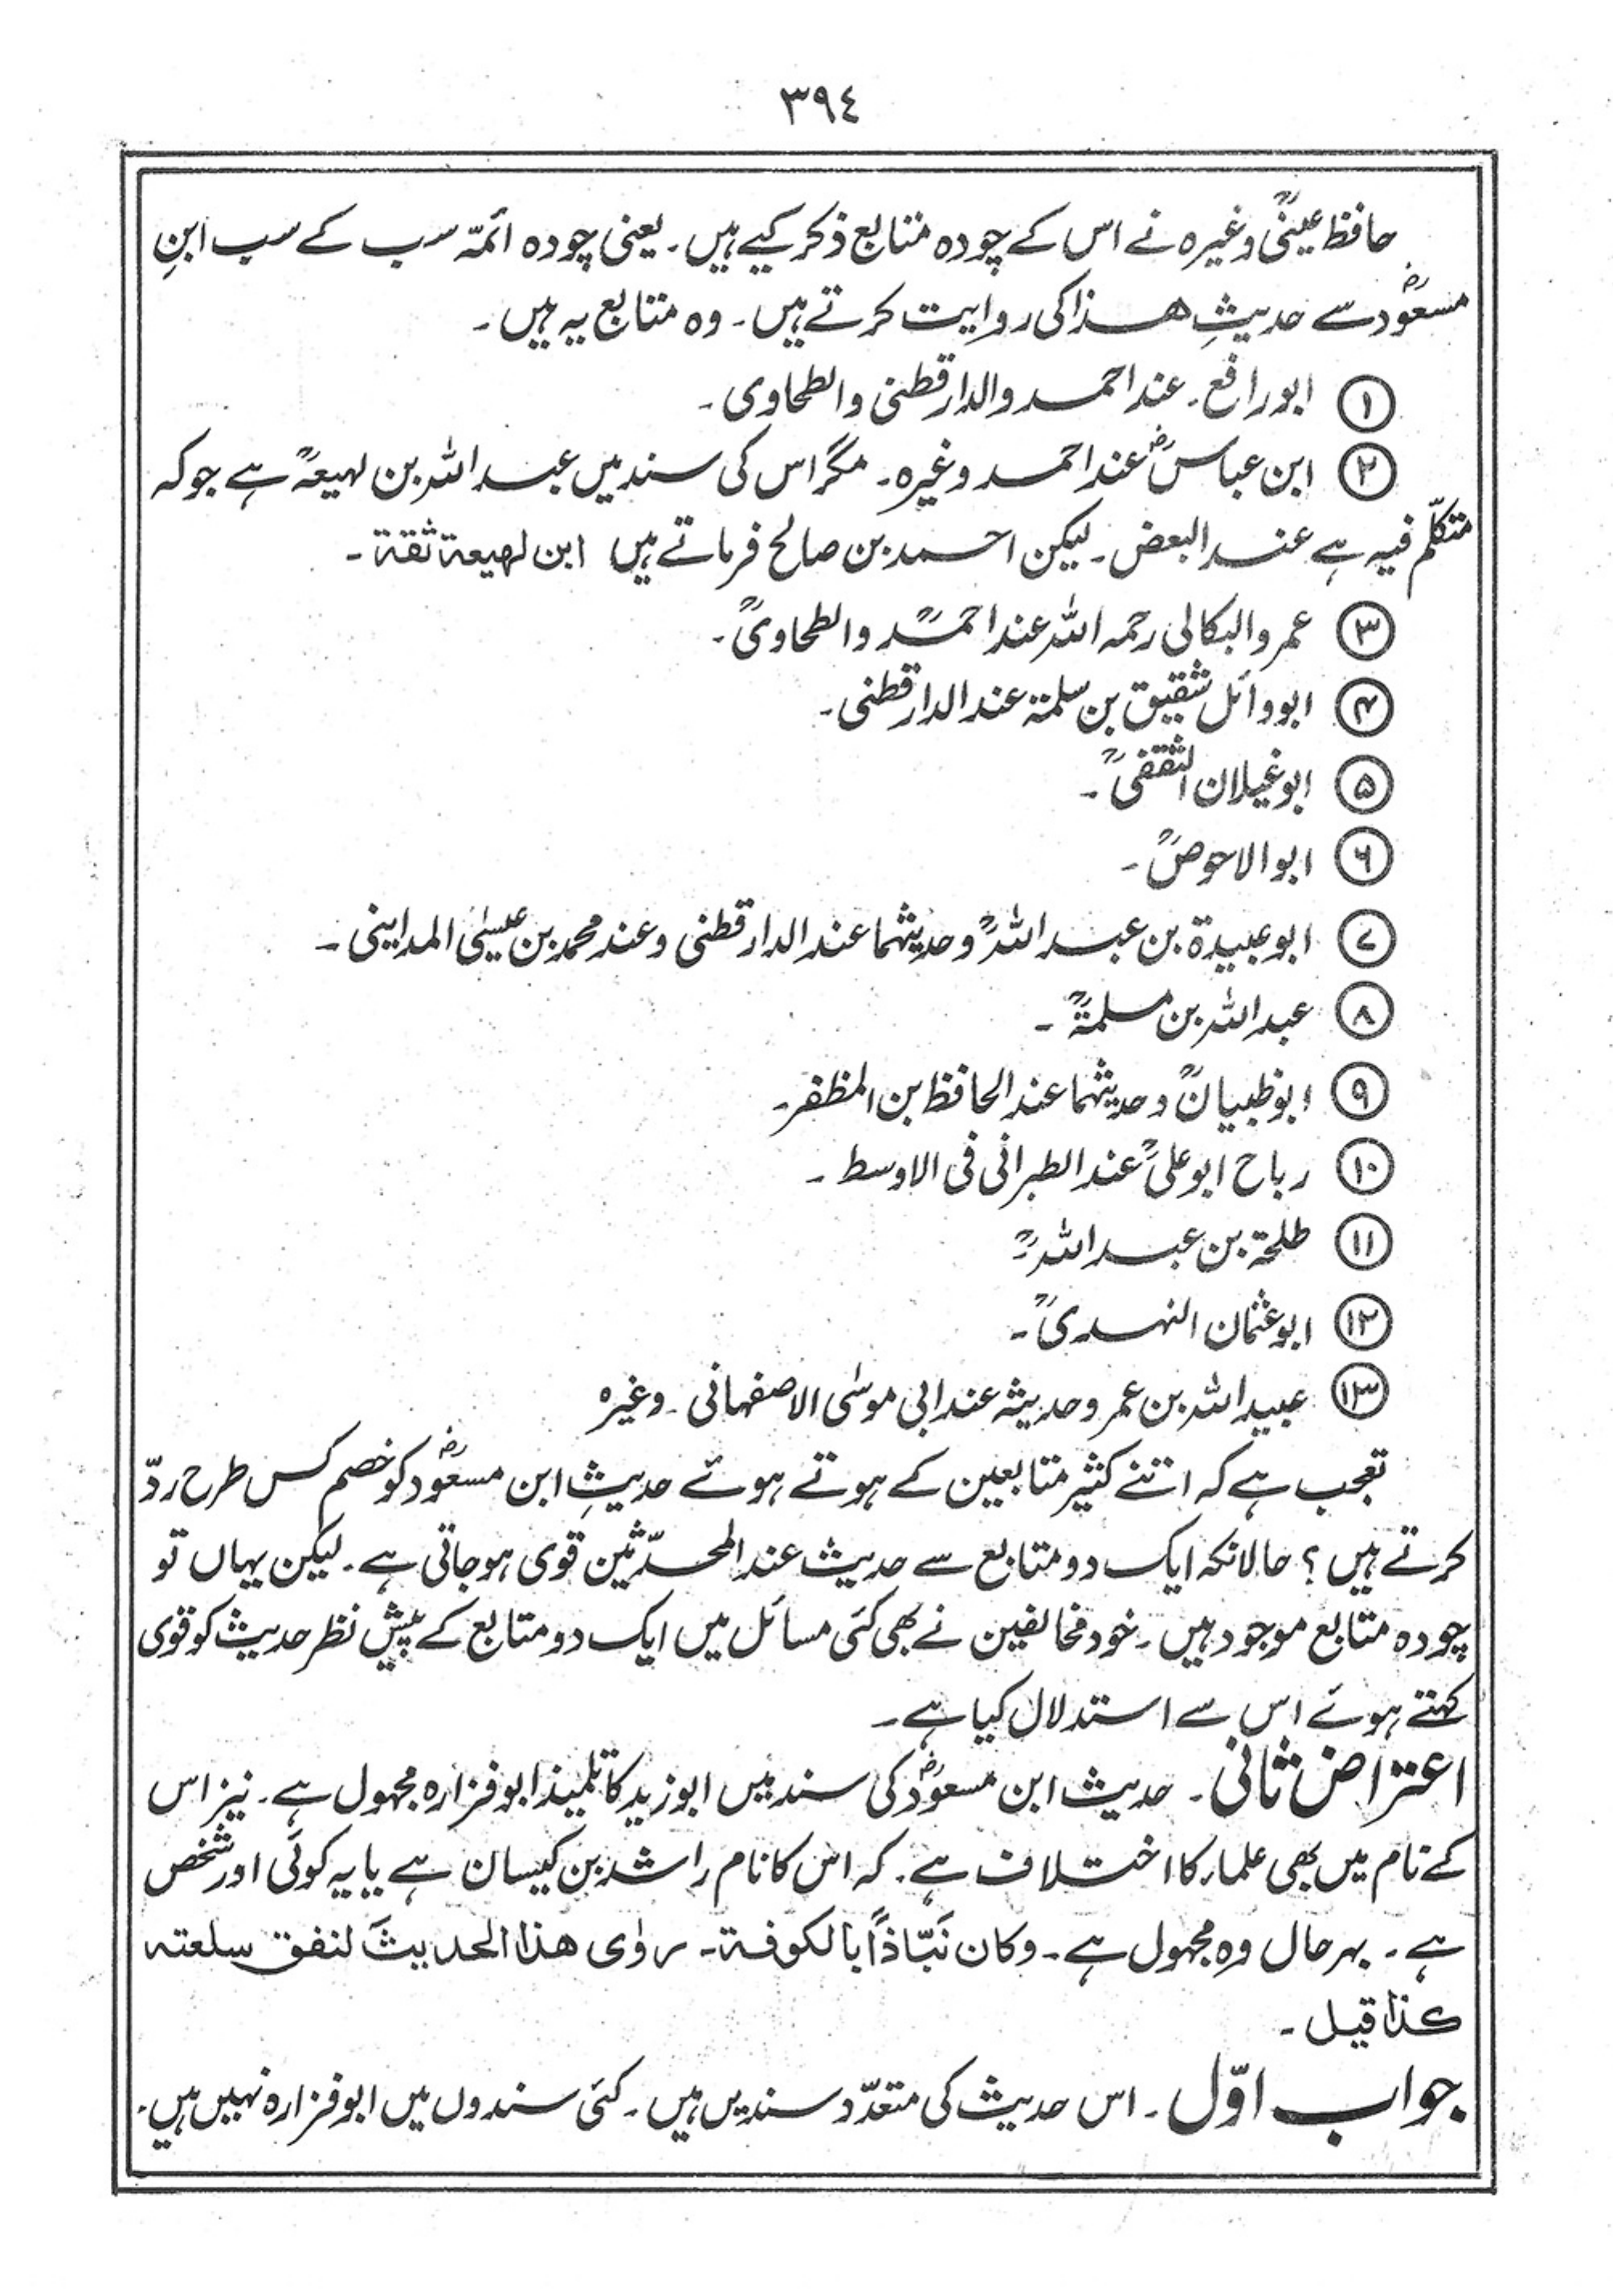 ۳۹٤
حافظ عینیؒ وغیرہ نے اس کے چودہ متابع ذکر کیے ہیں۔ یعنی چودہ ائمّہ سب کے سب ابنِ
مسعودؓ سے حدیثِ ھذا کی روایت کرتے ہیں۔ وہ متابع یہ ہیں۔
۱ ابورافع۔ عند احمد والدارقطنی والطحاوی۔
۲ ابن عباسؓ عند احمد وغیرہ۔ مگر اس کی سند میں عبداللہ بن لہیعہؒ ہے جو کہ
متکلّم فیہ ہے عند البعض۔ لیکن احمد بن صالح فرماتے ہیں ابن لهیعة ثقة۔
۳ عمرو البکالی رحمہ اللہ عند احمدؒ والطحاویؒ۔
۴ ابووائل شقیق بن سلمۃ عند الدارقطنی۔
۵ ابوغیلان الثقفیؒ۔
۶ ابوالاحوصؒ۔
۷ ابوعبیدۃ بن عبداللہؒ وحدیثہما عند الدارقطنی وعند محمد بن عیسٰی المداینی۔
۸ عبداللہ بن مسلمۃؒ۔
۹ ابوظبیانؒ وحدیثہما عند الحافظ بن المظفر۔
۱۰ رباح ابوعلیؒ عند الطبرانی فی الاوسط۔
۱۱ طلحۃ بن عبداللہؒ
۱۲ ابوعثمان النہدیؒ۔
۱۳ عبیداللہ بن عمر وحدیثہ عند ابی موسٰی الاصفہانی۔ وغیرہ
تعجب ہے کہ اتنے کثیر متابعین کے ہوتے ہوئے حدیثِ ابن مسعودؓ کو خصم کس طرح ردّ
کرتے ہیں؟ حالانکہ ایک دو متابع سے حدیث عند المحدّثین قوی ہوجاتی ہے۔ لیکن یہاں تو
چودہ متابع موجود ہیں۔ خود مخالفین نے بھی کئی مسائل میں ایک دو متابع کے پیشِ نظر حدیث کو قوی
کہتے ہوئے اس سے استدلال کیا ہے۔
اعتراض ثانی۔ حدیث ابن مسعودؓ کی سند میں ابوزید کا تلمیذ ابوفزارہ مجہول ہے۔ نیز اس
کے نام میں بھی علماء کا اختلاف ہے۔ کہ اس کا نام راشد بن کیسان ہے یا یہ کوئی اور شخص
ہے۔ بہرحال وہ مجہول ہے۔ وکان نَبّاذًا بالکوفة۔ روٰی هذا الحدیثَ لنفق سلعته
کذا قیل۔
جواب اوّل۔ اس حدیث کی متعدّد سندیں ہیں۔ کئی سندوں میں ابوفزارہ نہیں ہیں۔